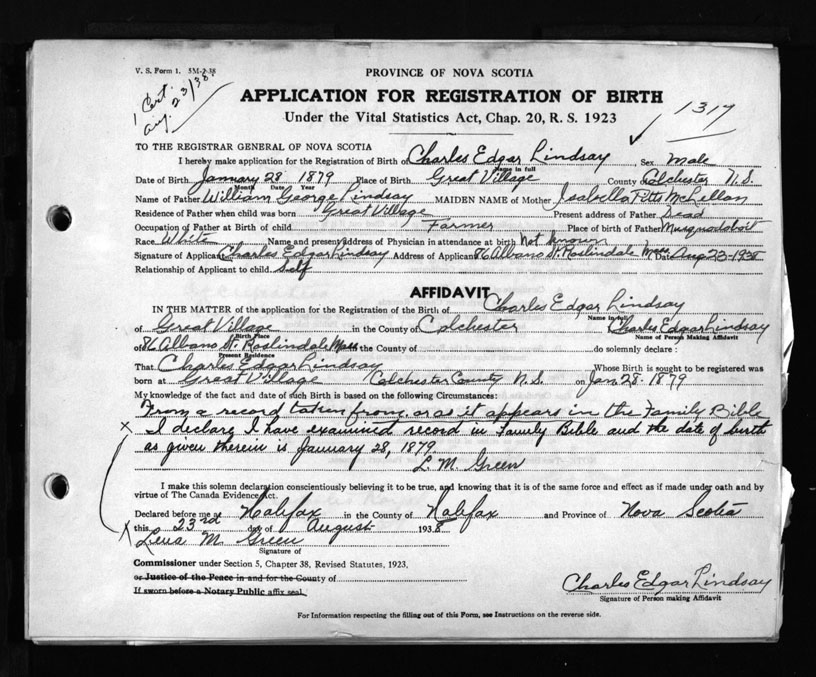 V. S. Form 1. 5M-2-38
1 Cert.
Aug. 23/38
PROVINCE OF NOVA SCOTIA
APPLICATION FOR REGISTRATION OF BIRTH
1317
Under the Vital Statistics Act, Chap. 20, R. S. 1923
TO THE REGISTRAR GENERAL OF NOVA SCOTIA
I hereby make application for the Registration of Birth of Charles Edgar Lindsay, Sex Male
Name in full
Date of Birth January 28 1879 Place of Birth Great Village County of Colchester N.S.
Month Date Year
Name of Father William George Lindsay MAIDEN NAME of Mother Isabella Potts McLellan
Residence of Father when child was born Great Village Present address of Father Dead
Occupation of Father at Birth of child Farmer Place of birth of Father Musquodoboit
Race White Name and present address of Physician in attendance at birth Not known
Signature of Applicant Charles Edgar Lindsay Address of Applicant 86 Albano St. Roslindale Mass Date Aug 23-1938
Relationship of Applicant to child Self
AFFIDAVIT
IN THE MATTER of the application for the Registration of the Birth of Charles Edgar Lindsay
Name in full
of Great Village in the County of Colchester Charles Edgar Lindsay
Birth Place Name of Person Making Affidavit
of 86 Albano St. Roslindale Mass the County of do solemnly declare :
Present Residence
That Charles Edgar Lindsay Whose Birth is sought to be registered was
born at Great Village Colchester County N.S. on Jan. 28. 1879
My knowledge of the fact and date of such Birth is based on the following Circumstances:
From a record taken from, or as it appears in the Family Bible
x I declare I have examined record in Family Bible and the date of birth
as given therein is January 28, 1879.
L. M. Green
I make this solemn declaration conscientiously believing it to be true, and knowing that it is of the same force and effect as if made under oath and by
virtue of The Canada Evidence Act.
Declared before me at Halifax in the County of Halifax and Province of Nova Scotia
this 23rd day of August 1938
x Lena M. Green
Signature of
Commissioner under Section 5, Chapter 38, Revised Statutes, 1923,
or Justice of the Peace in and for the County of
If sworn before a Notary Public affix seal.
Charles Edgar Lindsay
Signature of Person making Affidavit
For Information respecting the filling out of this Form, see Instructions on the reverse side.